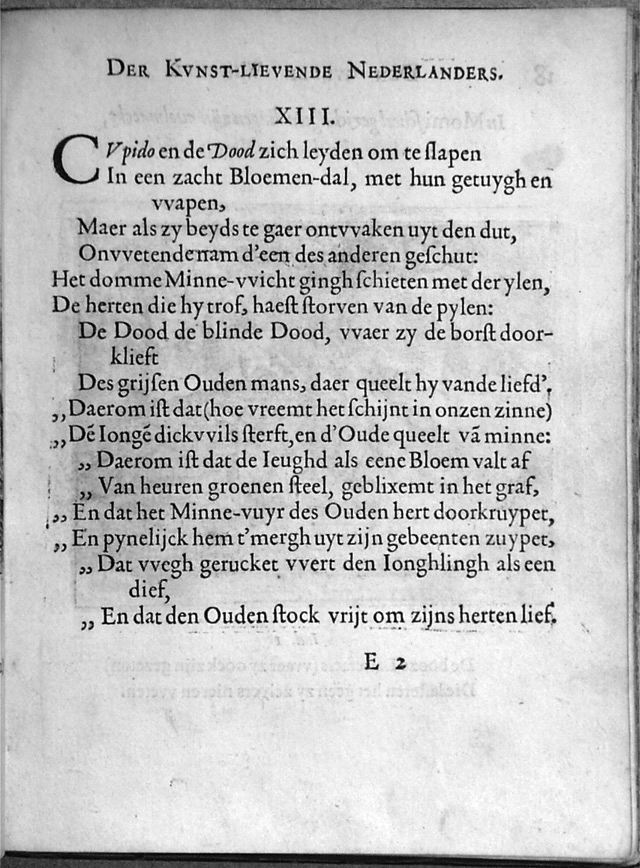 DER KVNST-LIEVENDE NEDERLANDERS.
XIII.
CVpido en de Dood zich leyden om te slapen
In een zacht Bloemen-dal, met hun getuygh en
vvapen,
Maer als zy beyds te gaer ontvvaken uyt den dut,
Onvvetende nam d'een des anderen geschut:
Het domme Minne-vvicht gingh schieten met der ylen,
De herten die hy trof, haest storven van de pylen:
De Dood de blinde Dood, vvaer zy de borst door-
klieft
Des grijsen Ouden mans, daer queelt hy vande liefd'.
,,Daerom ist dat (hoe vreemt het schijnt in onzen zinne)
,,Dē Iongē dickvvils sterft, en d'Oude queelt vā minne:
,, Daerom ist dat de Ieughd als eene Bloem valt af
,, Van heuren groenen steel, geblixemt in het graf,
,, En dat het Minne-vuyr des Ouden hert doorkruypet,
,, En pynelijck hem t'mergh uyt zijn gebeenten zuypet,
,, Dat vvegh gerucket vvert den Ionghlingh als een
dief,
,, En dat den Ouden stock vrijt om zijns herten lief.
E 2